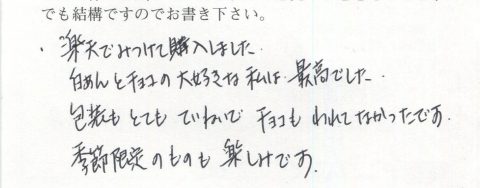 でも結構ですのでお書き下さい。
・楽天でみつけて購入しました。
白あんとチョコの大好きな私は最高でした。
包装もとてもていねいでチョコもわれてなかったです。
季節限定のものも楽しみです。